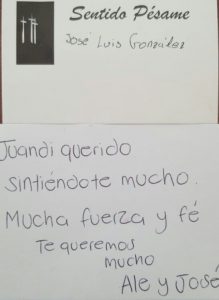 Sentido Pésame
José Luis González
Juandi querido
sintiéndote mucho.
Mucha fuerza y fé
Te queremos
mucho
Ale y José